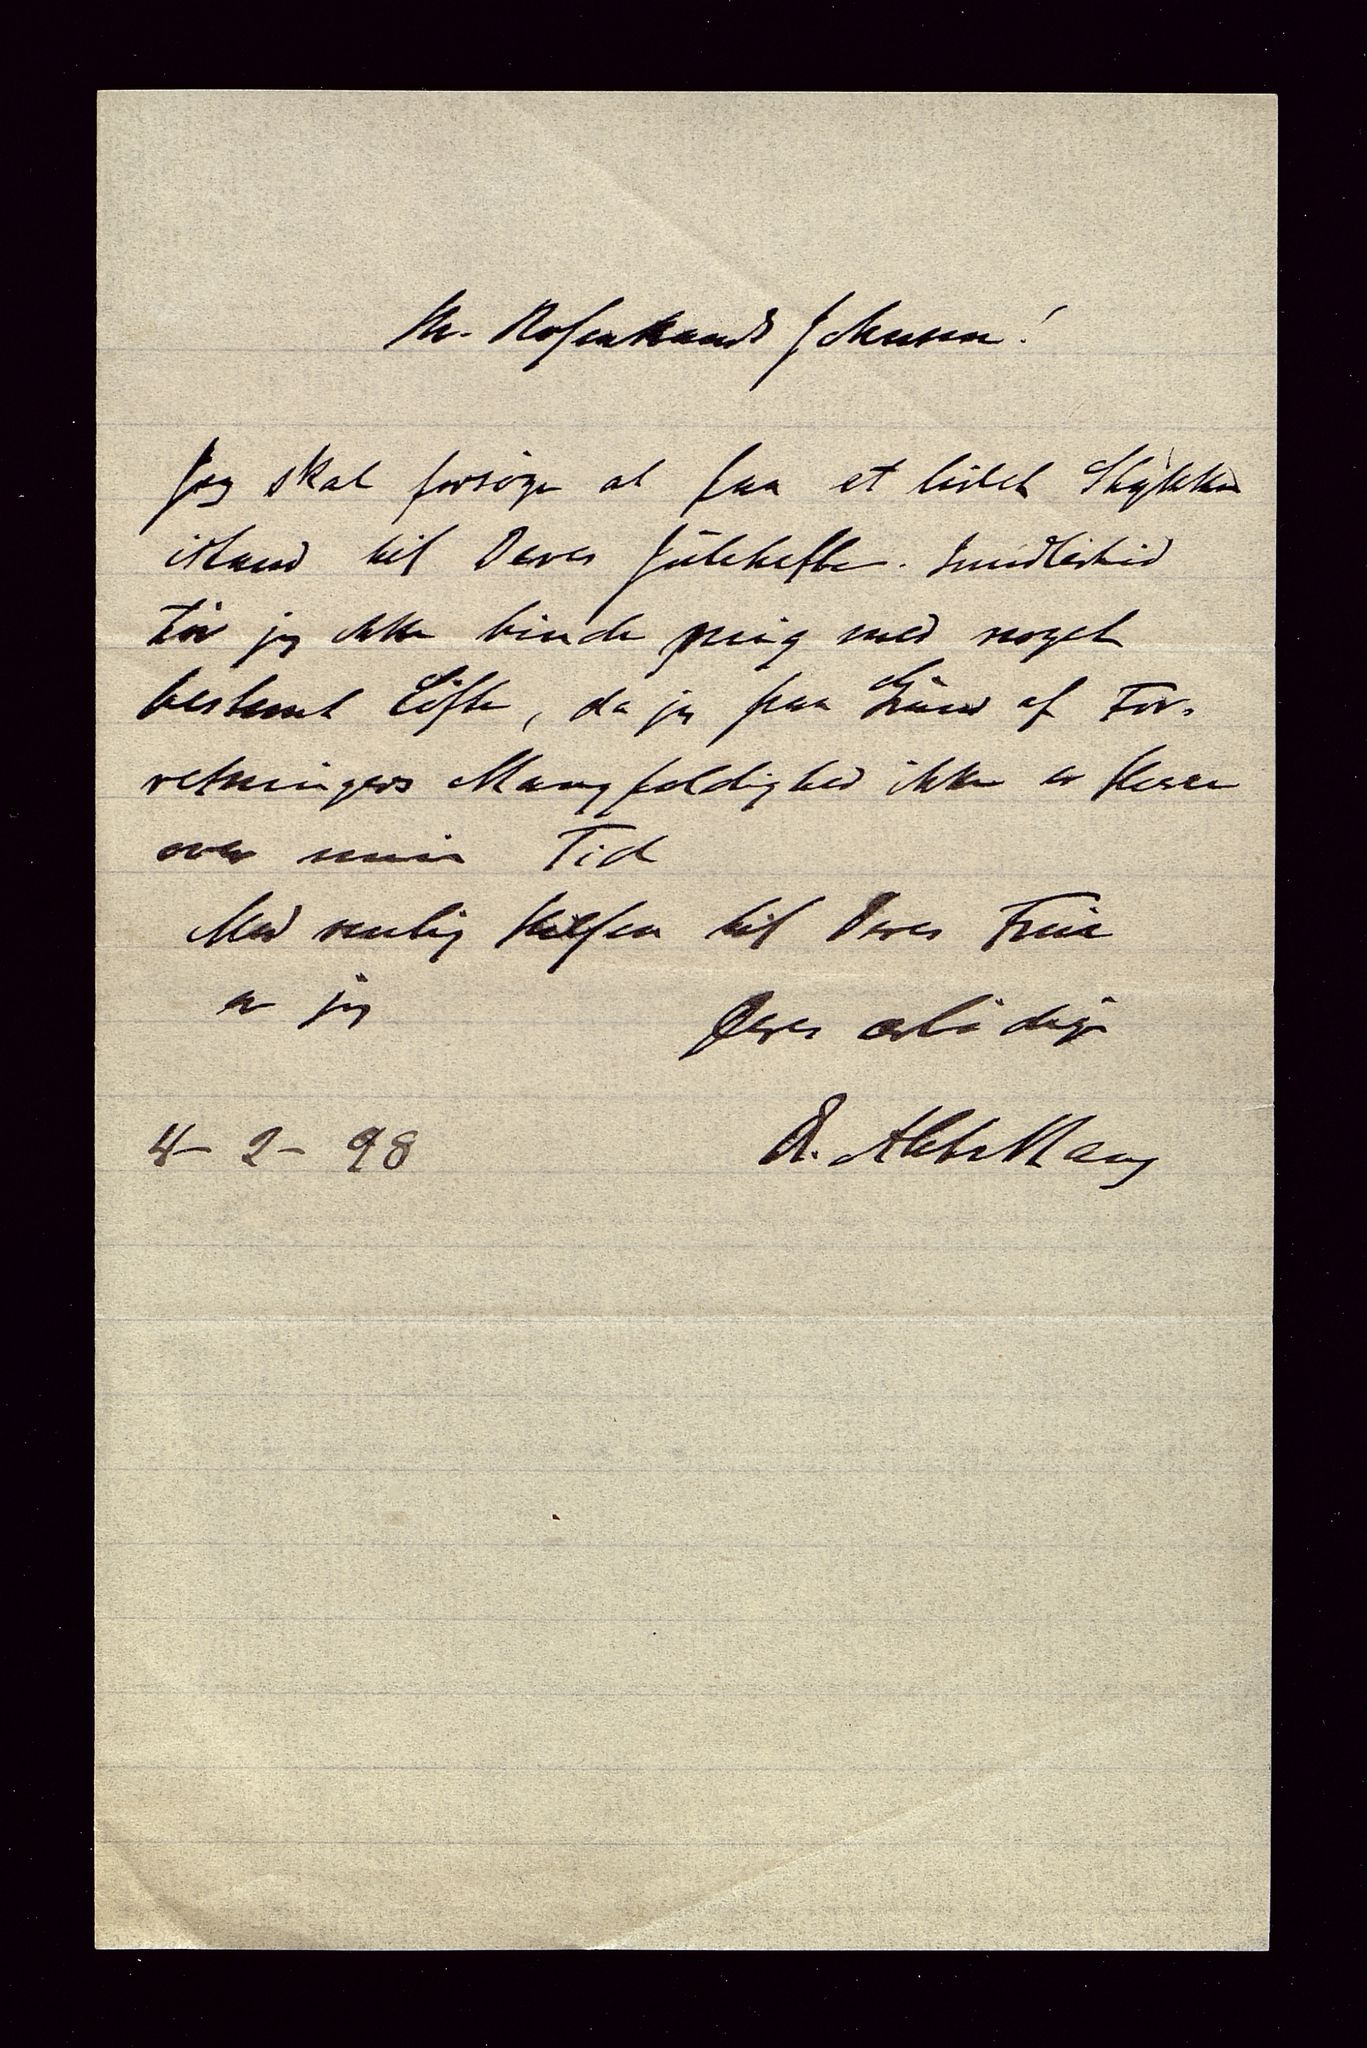 Hr. Rosenkrands Johnsen!
Jeg skal forsøge at faa et lidet Stykke
istand til Deres Julehefte. Imidlertid
tør jeg ikke binde mig med noget
bestemt Løfte, da jeg paa Grund af For-
retningers Mangfoldighed ikke er Herre
over min Tid
Med venlig Hilsen til Deres Frue
er jeg
Deres ærbødige
4-2-98